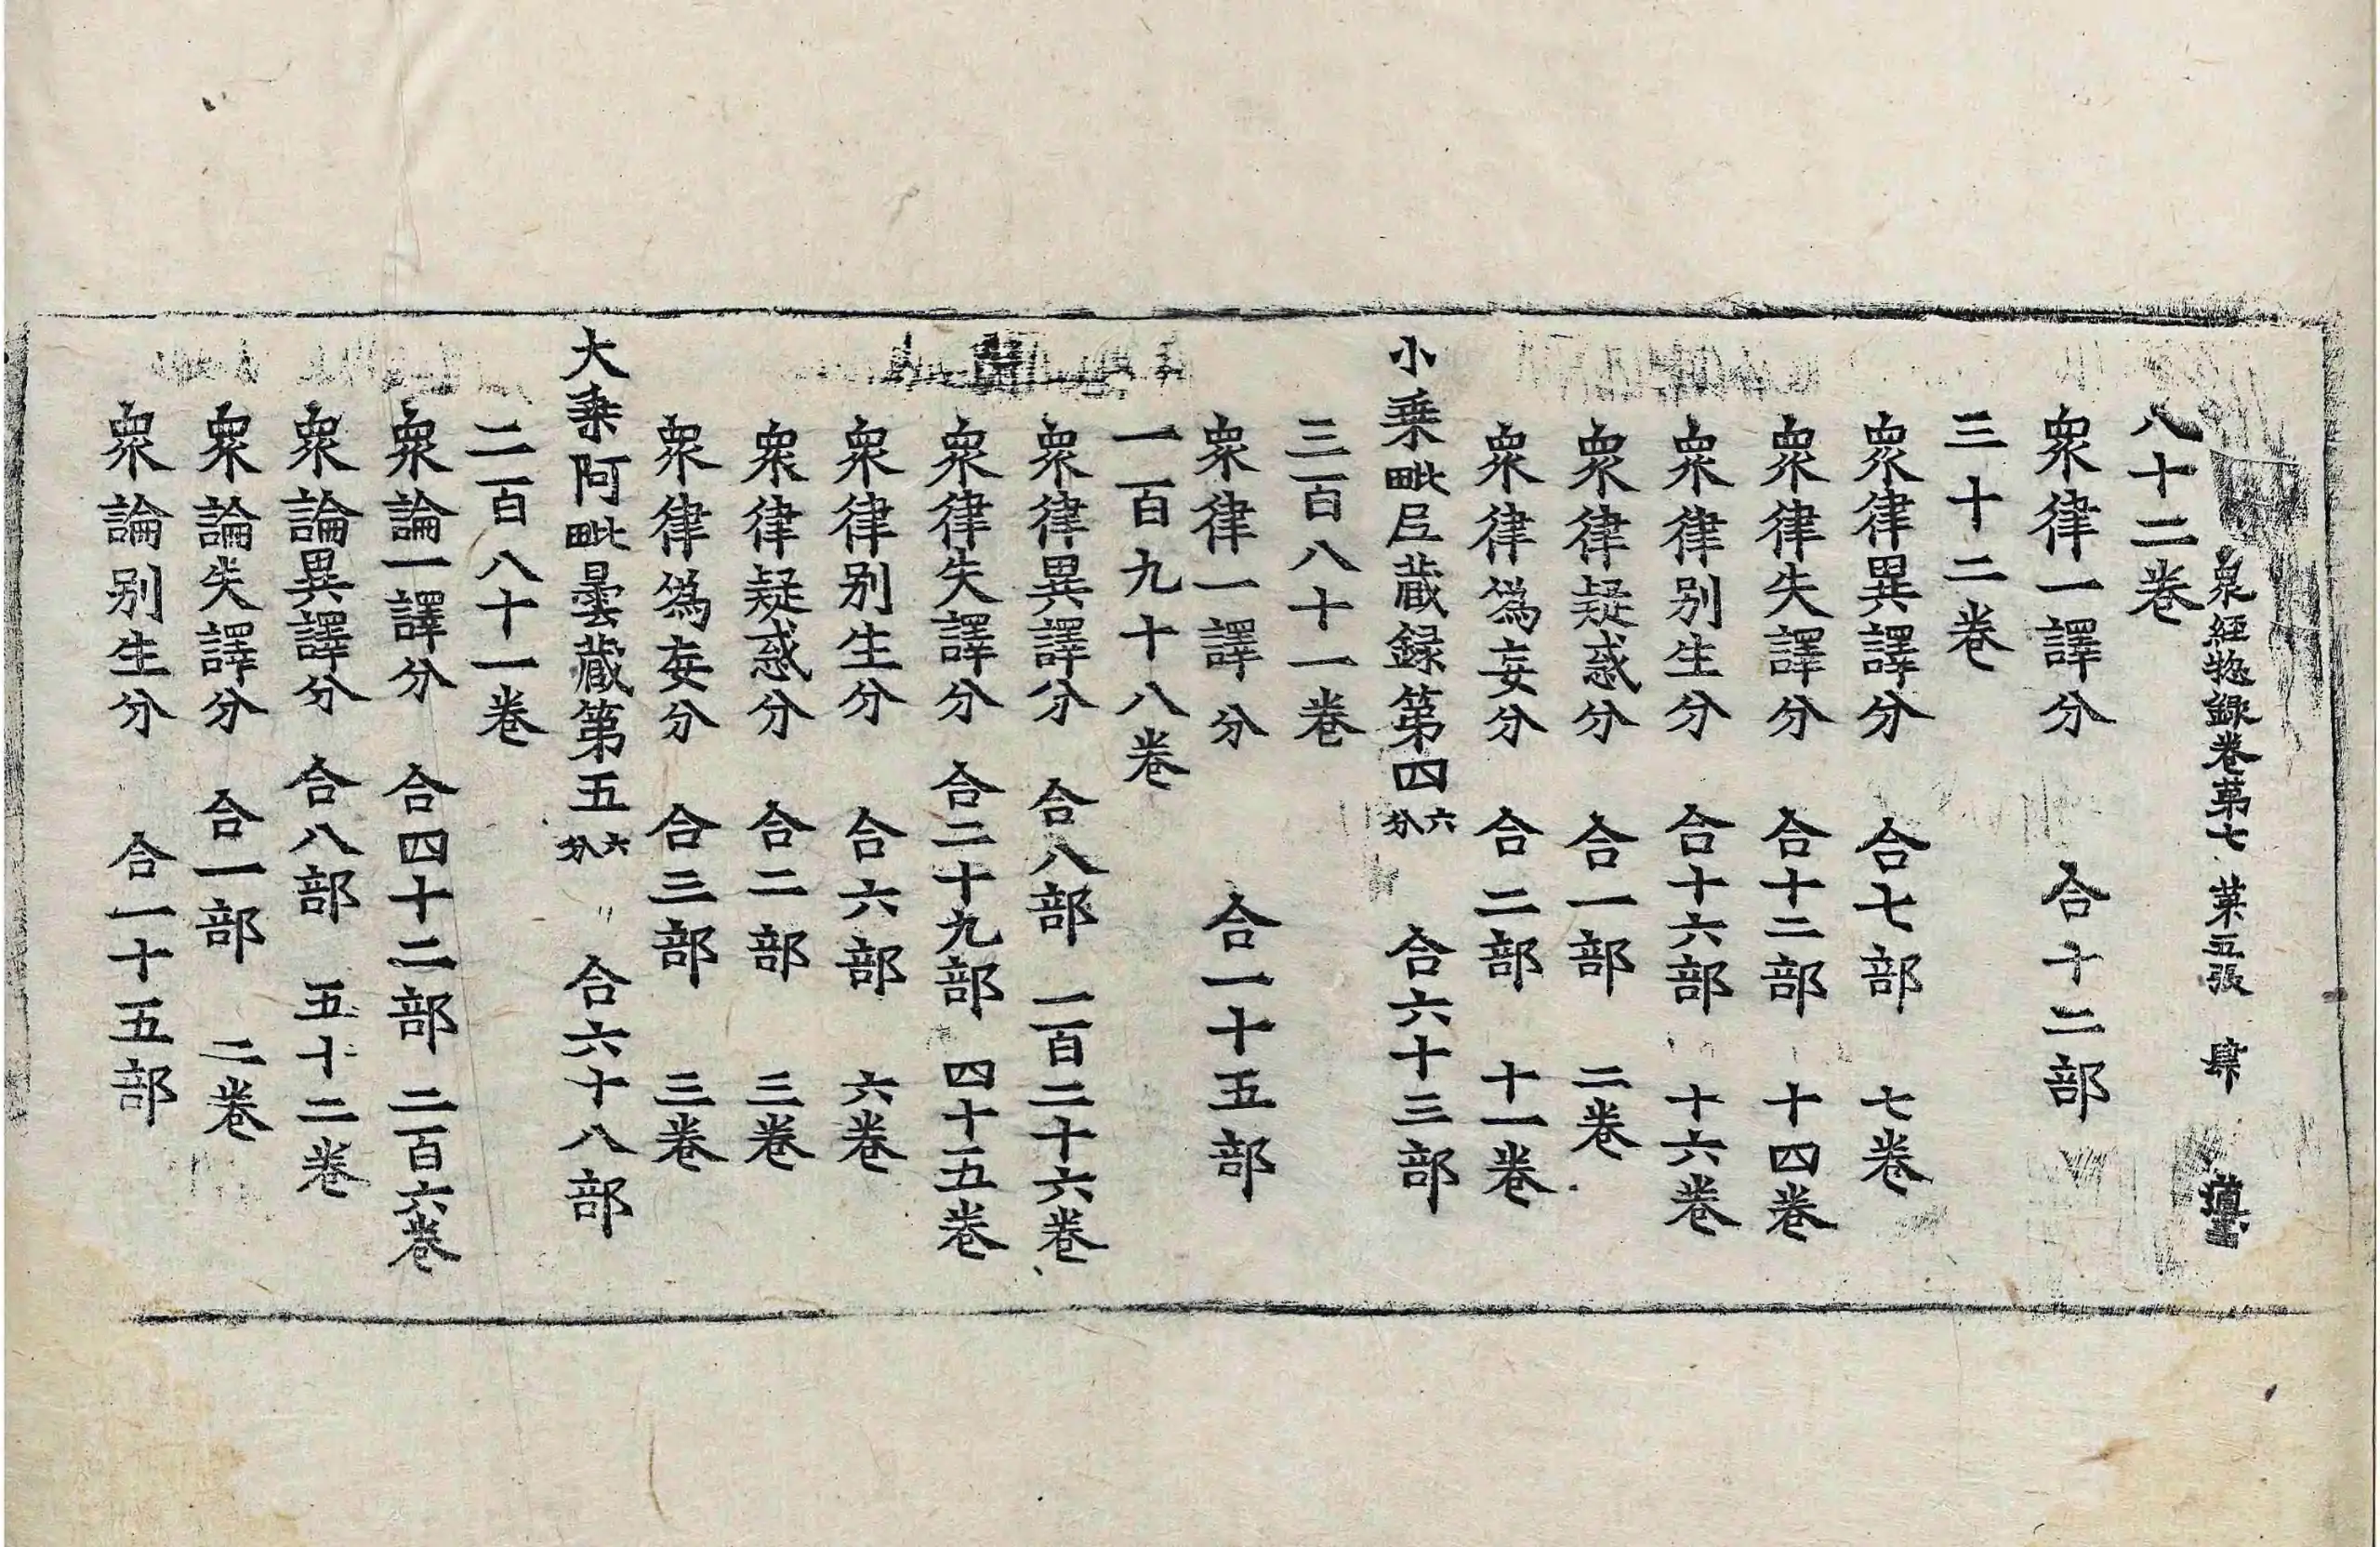 衆經惣録卷第七 第五張 肆
八十二卷
衆律一譯分 合十二部
三十二卷
衆律異譯分 合七部 七卷
衆律失譯分 合十二部 十四卷
衆律别生分 合十六部 十六卷
衆律疑惑分 合一部 二卷
衆律僞妄分 合二部 十一卷
小乗毗尼藏録第四六分 合六十三部
三百八十一卷
衆律一譯分 合一十五部
一百九十八卷
衆律異譯分 合八部 一百二十六卷
衆律失譯分 合二十九部 四十五卷
衆律别生分 合六部 六卷
衆律疑惑分 合二部 三卷
衆律僞妄分 合三部 三卷
大乗阿毗曇藏第五六分 合六十八部
二百八十一卷
衆論一譯分 合四十二部 二百六卷
衆論異譯分 合八部 五十二卷
衆論失譯分 合一部 二卷
衆論别生分 合一十五部